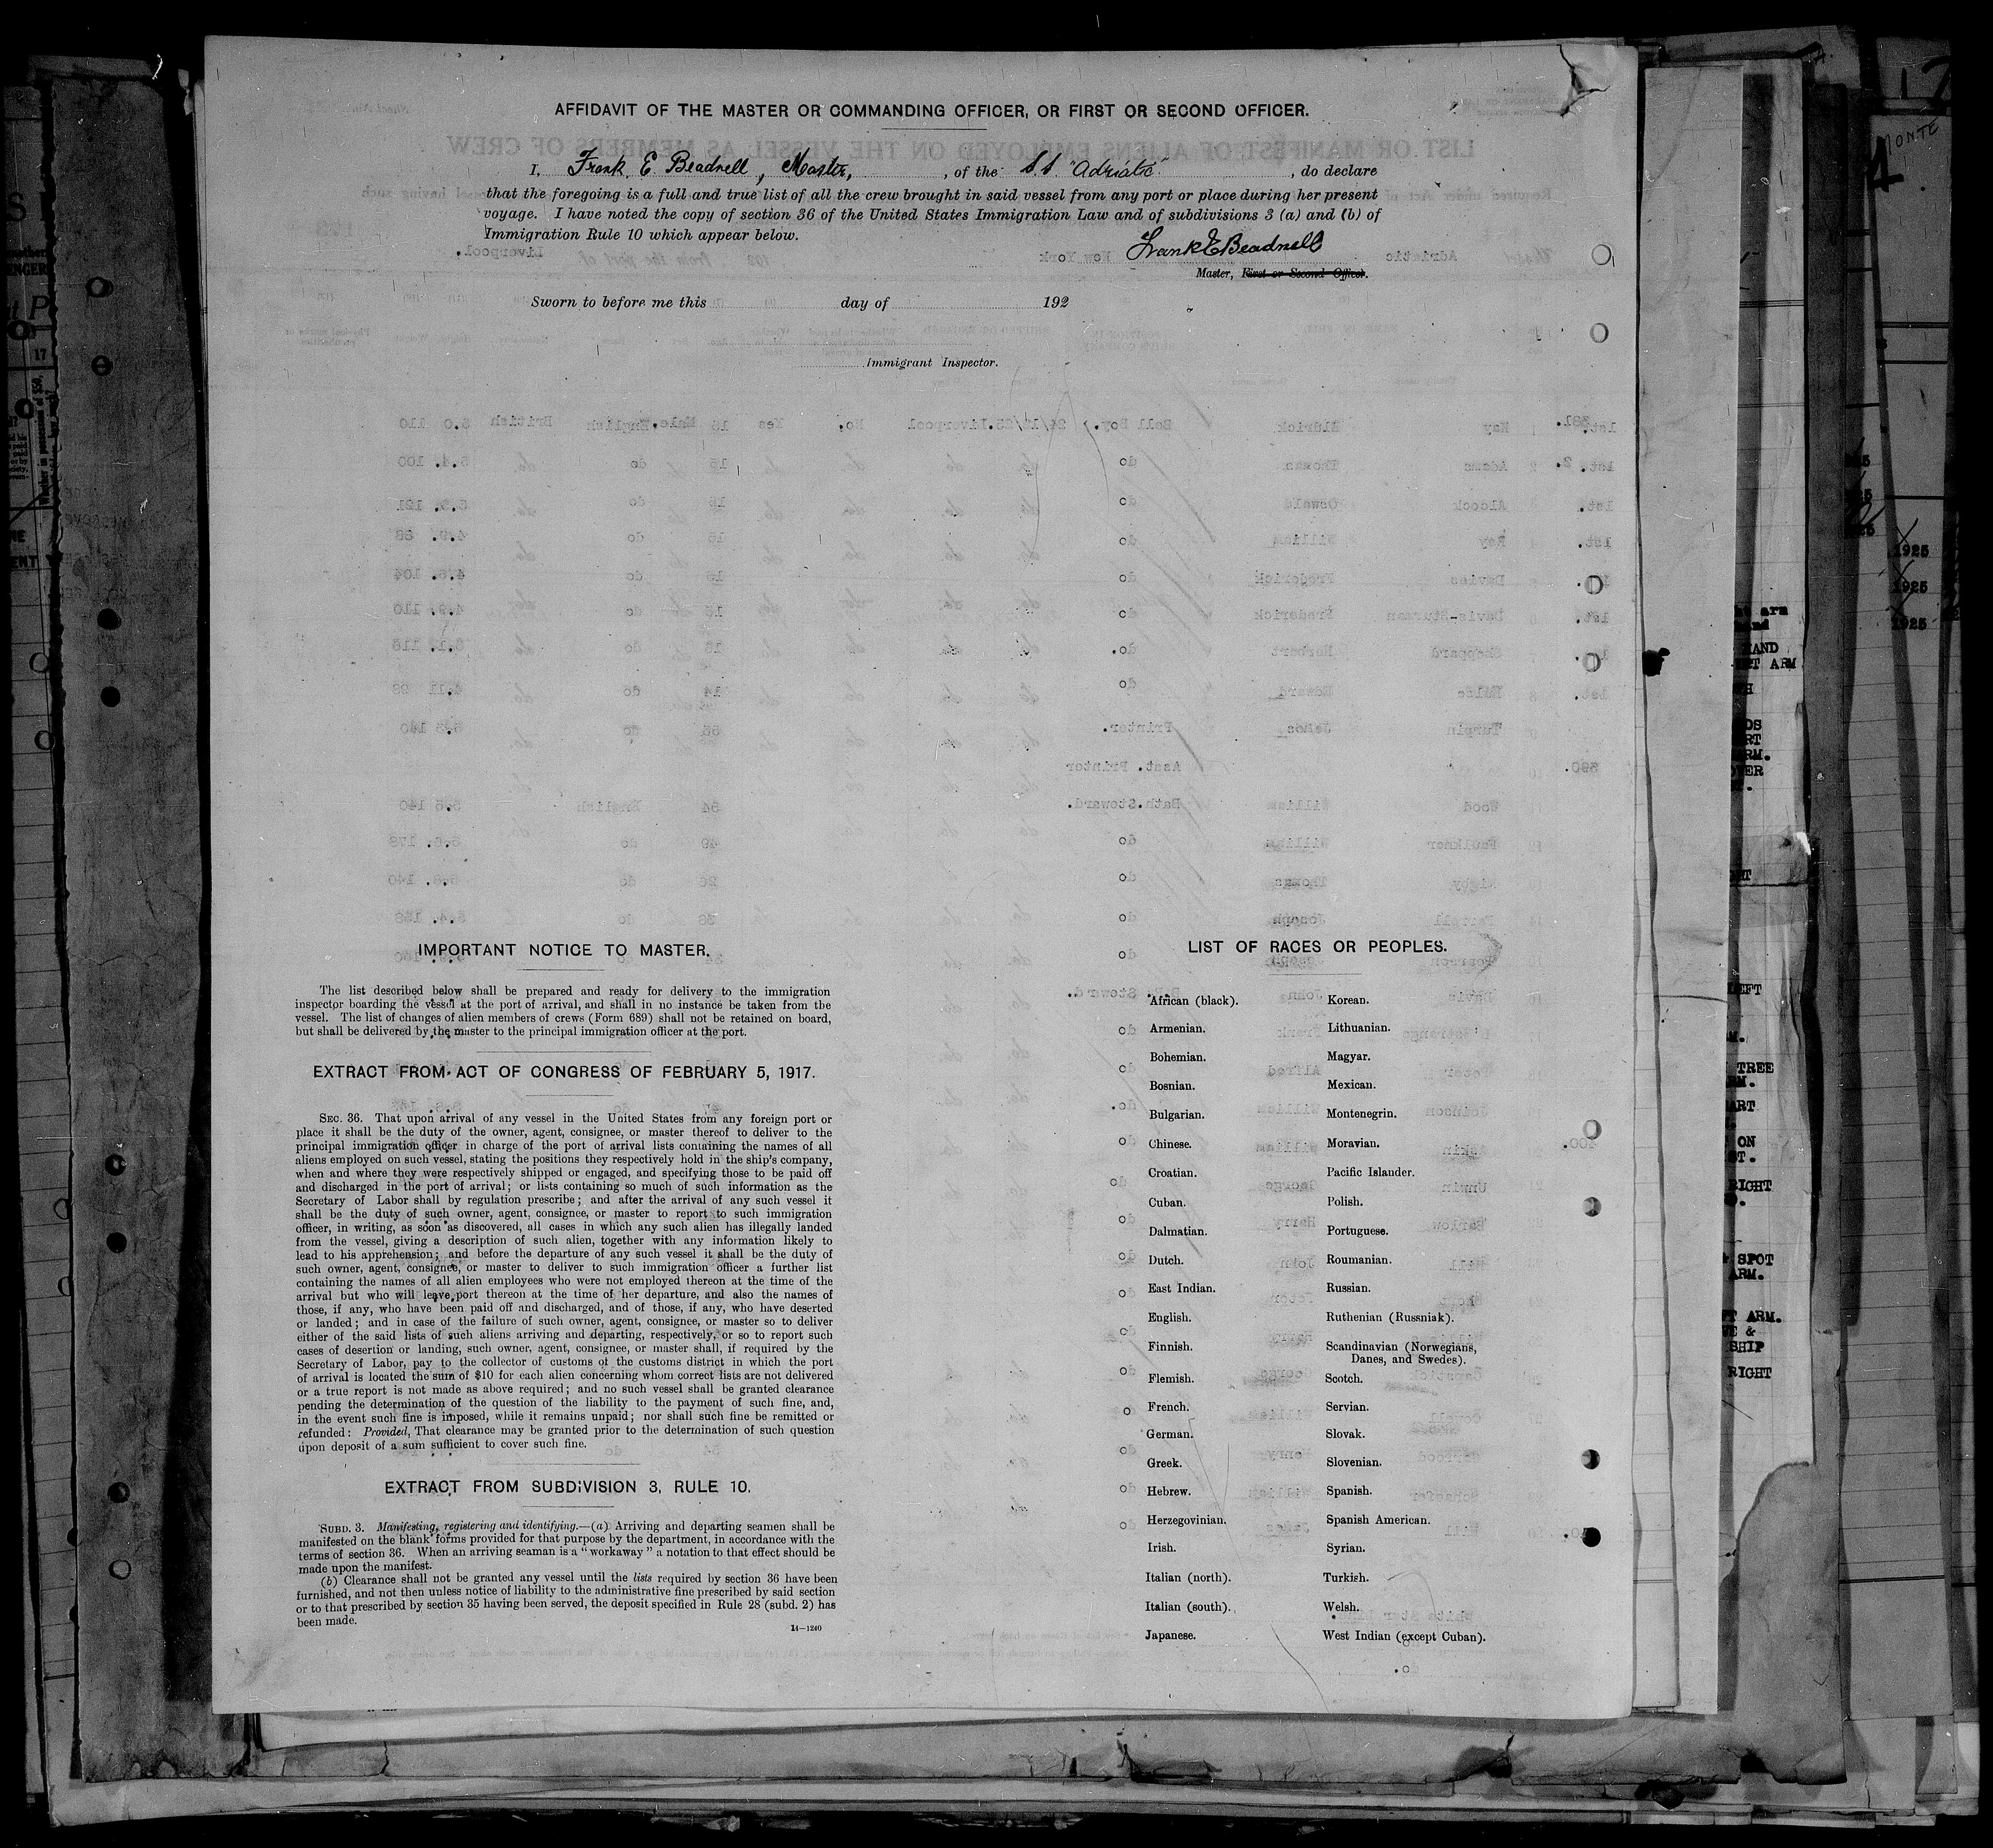 AFFIDAVIT OF THE MASTER OR COMMANDING OFFICER, OR FIRST OR SECOND OFFICER.
I, Frank E. Beadnell, Master, , of the S.S. "Adriatic" , do declare
that the foregoing is a full and true list of all the crew brought in said vessel from any port or place during her present
voyage. I have noted the copy of section 36 of the United States Immigration Law and of subdivisions 3 (a) and (b) of
Immigration Rule 10 which appear below.
Frank E Beadnell
Master, First or Second Officer.
Sworn to before me this day of 192
Immigrant Inspector.
IMPORTANT NOTICE TO MASTER.
The list described below shall be prepared and ready for delivery to the immigration
inspector boarding the vessel at the port of arrival, and shall in no instance be taken from the
vessel. The list of changes of alien members of crews (Form 689) shall not be retained on board,
but shall be delivered by the master to the principal immigration officer at the port.
EXTRACT FROM ACT OF CONGRESS OF FEBRUARY 5, 1917.
SEC. 36. That upon arrival of any vessel in the United States from any foreign port or
place it shall be the duty of the owner, agent, consignee, or master thereof to deliver to the
principal immigration officer in charge of the port of arrival lists containing the names of all
aliens employed on such vessel, stating the positions they respectively hold in the ship's company,
when and where they were respectively shipped or engaged, and specifying those to be paid off
and discharged in the port of arrival; or lists containing so much of such information as the
Secretary of Labor shall by regulation prescribe; and after the arrival of any such vessel it
shall be the duty of such owner, agent, consignee, or master to report to such immigration
officer, in writing, as soon as discovered, all cases in which any such alien has illegally landed
from the vessel, giving a description of such alien, together with any information likely to
lead to his apprehension; and before the departure of any such vessel it shall be the duty of
such owner, agent, consignee, or master to deliver to such immigration officer a further list
containing the names of all alien employees who were not employed thereon at the time of the
arrival but who will leave port thereon at the time of her departure, and also the names of
those, if any, who have been paid off and discharged, and of those, if any, who have deserted
or landed; and in case of the failure of such owner, agent, consignee, or master so to deliver
either of the said lists of such aliens arriving and departing, respectively, or so to report such
cases of desertion or landing, such owner, agent, consignee, or master shall, if required by the
Secretary of Labor, pay to the collector of customs of the customs district in which the port
of arrival is located the sum of $10 for each alien concerning whom correct lists are not delivered
or a true report is not made as above required; and no such vessel shall be granted clearance
pending the determination of the question of the liability to the payment of such fine, and,
in the event such fine is imposed, while it remains unpaid; nor shall such fine be remitted or
refunded: Provided, That clearance may be granted prior to the determination of such question
upon deposit of a sum sufficient to cover such fine.
EXTRACT FROM SUBDIVISION 3, RULE 10.
SUBD. 3. Manifesting, registering and identifying.—(a) Arriving and departing seamen shall be
manifested on the blank forms provided for that purpose by the department, in accordance with the
terms of section 36. When an arriving seaman is a "workaway" a notation to that effect should be
made upon the manifest.
(b) Clearance shall not be granted any vessel until the lists required by section 36 have been
furnished, and not then unless notice of liability to the administrative fine prescribed by said section
or to that prescribed by section 35 having been served, the deposit specified in Rule 28 (subd. 2) has
been made.
14—1240
LIST OF RACES OR PEOPLES.
African (black). Korean.
Armenian. Lithuanian.
Bohemian. Magyar.
Bosnian. Mexican.
Bulgarian. Montenegrin.
Chinese. Moravian.
Croatian. Pacific Islander.
Cuban. Polish.
Dalmatian. Portuguese.
Dutch. Roumanian.
East Indian. Russian.
English. Ruthenian (Russniak).
Finnish. Scandinavian (Norwegians,
Danes, and Swedes).
Flemish. Scotch.
French. Servian.
German. Slovak.
Greek. Slovenian.
Hebrew. Spanish.
Herzegovinian. Spanish American.
Irish. Syrian.
Italian (north). Turkish.
Italian (south). Welsh.
Japanese. West Indian (except Cuban).